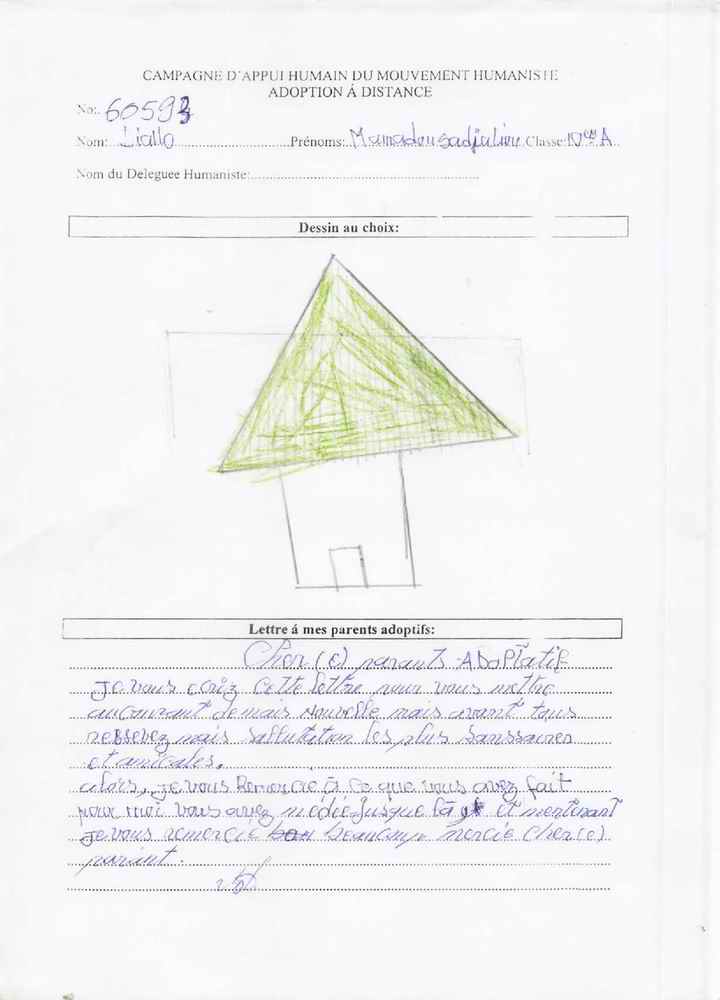 CAMPAGNE D'APPUI HUMAIN DU MOUVEMENT HUMANISTE
ADOPTION Á DISTANCE
No:. 60593
Nom: Diallo Prénoms: Mamadou sadjaliou Classe: 10em A
Nom du Deleguee Humaniste:
Dessin au choix:
Lettre á mes parents adoptifs:
Cher(e) parants ADOPTATIF
Je vous écriz cette lettre pour vous mettre
au courant de mais Nouvelle mais avant tous
ressevez mais Salutation les plus Sanssaires
et amicales.
alors, je vous Remercie à ce que vous avez fait
pour moi vous avez médié Jusque là et mentenant
Je vous remercie beaucoup mercie Cher(e)
parant.